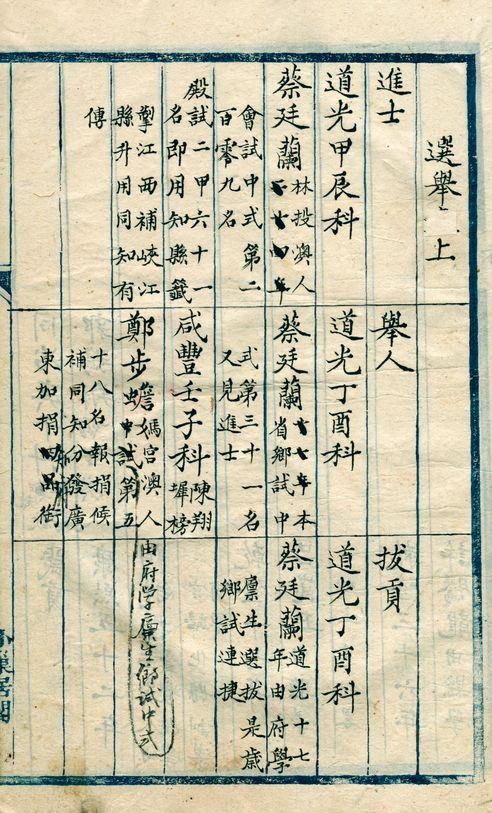 選舉 上
進士
道光甲辰科
蔡廷蘭
林投澳人
廿四年
會試中式第二
百零九名
殿試二甲六十一
名即用知縣籤
掣江西補峽江
縣升用同知有
傳
舉人
道光丁酉科
蔡廷蘭
十七年本
省鄉試中
式第三十一名
又見進士
咸豐壬子科
陳翔
墀榜
鄭步蟾
媽宮澳人
中試第五
十八名報捐候
補同知分發廣
東加捐四品銜
由府學廩生鄉試中式
拔貢
道光丁酉科
蔡廷蘭
道光十七
年由府學
廩生選拔是歲
鄉試連捷